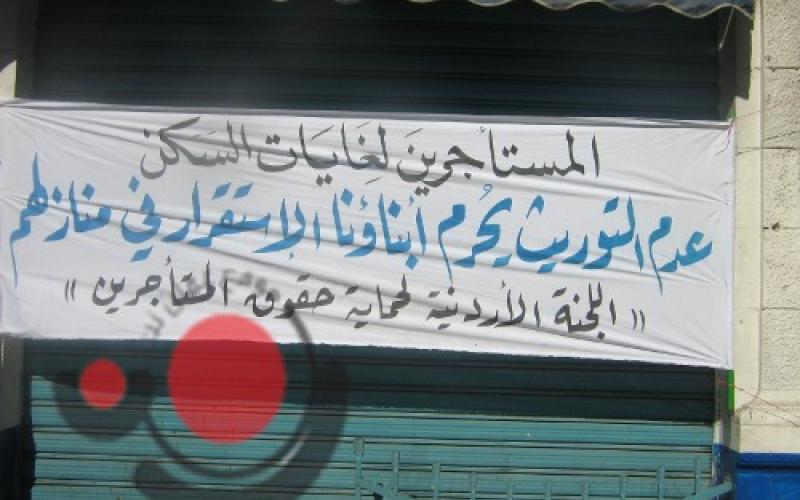 المستأجرين لغَايَات السَكن
عدم التوريث يحُرم أبناؤنا الإستقرار في منازلهم
" اللجنة الأردنية لحماية حقوق المستأجرين "